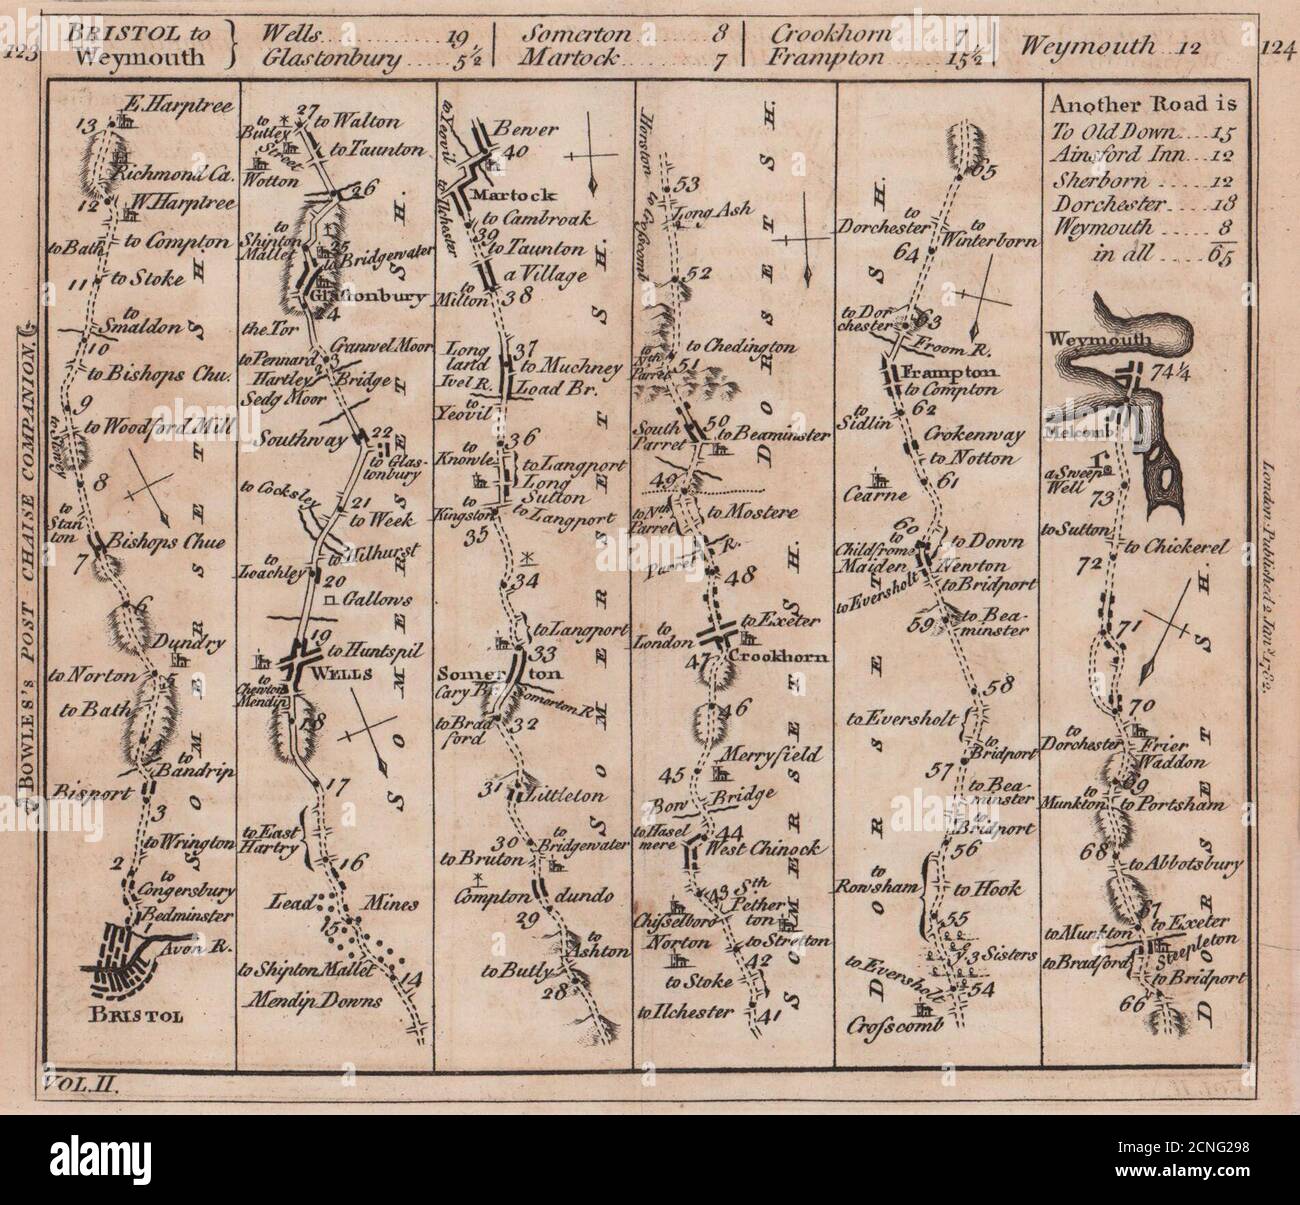 123
BRISTOL to
Weymouth
Wells 19
Glastonbury 5½
Somerton 8
Martock 7
Crookhorn 7
Frampton 15½
Weymouth 12
124
BOWLES's POST CHAISE COMPANION.
E. Harptree
13
Richmond Ca.
12
W. Harptree
to Bath
to Compton
11
to Stoke
to
Smaldon
10
to Bishops Chu.
9
to Woodford Mill
to Stowey
8
to
Stan
ton
7
Bishops Chue
6
Dundry
to Norton
5
to Bath
4
to
Bandrip
Bisport
3
to Wrington
2
to
Congersbury
Bedminster
Avon R.
BRISTOL
SOMERSETSH.
27
to
Butley
to Walton
Street
to Taunton
Wotton
26
to
Shipton
Mallet
25
old Bridgewater
Glastonbury
24
the Tor
Granvel Moor
to Pennard
23
Hartley
Bridge
Sedg Moor
Southway
22
to Glas-
tonbury
to Cocksley
21
to Week
to Wilhurst
to
Loachley
20
Gallows
19
to Huntspil
WELLS
to
Chewton
Mendip
18
17
to East
Hartry
16
Lead
Mines
15
to Shipton Mallet
14
Mendip Downs
SOMERSETSH.
to Yeovil
Bewer
40
Martock
to Ilchester
to Cambroak
39
to Taunton
a Village
to
Milton
38
Long
land
37
to Muchney
Ivel R.
Load Br.
to
Yeovil
36
to
Knowle
to Langport
Long
Sutton
to
Kingston
to Langport
35
34
to Langport
33
Somerton
Cary R.
Somerton R.
to Brad
ford
32
31
Littleton
30
to
Bridgewater
to Bruton
Compton
dundo
29
to
Ashton
to Butly
28
SOMERSETSH.
Horston
53
Long Ash
to Crosscomb
52
to Chedington
to
Nth
Parret
51
South
Parret
50
to Beaminster
49
to Nth
Parret
to Mostere
Parret
R.
48
to
London
to Exeter
47
Crookhorn
46
Merryfield
45
Bow
Bridge
to Hasel
mere
44
West Chinock
43
Sth
Pether
ton
Chisselboro
Norton
to Stretton
42
to Stoke
to Ilchester
41
DORSETSH.
SOMERSETSH.
65
to
Dorchester
to
Winterborn
64
to Dor
chester
63
Froom R.
Frampton
to Compton
to
Sidlin
62
Crokenway
to Notton
61
Cearne
60
to
Childfrome
to Down
Maiden
Newton
to Eversholt
to Bridport
59
to Bea-
minster
58
to Eversholt
to
Bridport
57
to Bea-
minster
to
Bridport
56
to
Rowsham
to Hook
55
3 Sisters
to Eversholt
54
Crosscomb
DORSETSH.
Another Road is
To Old Down 15
Ainsford Inn 12
Sherborn 12
Dorchester 18
Weymouth 8
in all 65
Weymouth
74¼
Melcomb
a Sweep
Well
73
to Sutton
to Chickerel
72
71
70
to
Dorchester
Frier
Waddon
69
to
Munkton
to Portsham
68
to Abbotsbury
67
to Munkton
to Exeter
Steepleton
to Bradford
to Bridport
66
DORSETSH.
London. Published 2 Jany. 1782.
VOL.II.
alamy
Image ID: 2CNG298
www.alamy.com